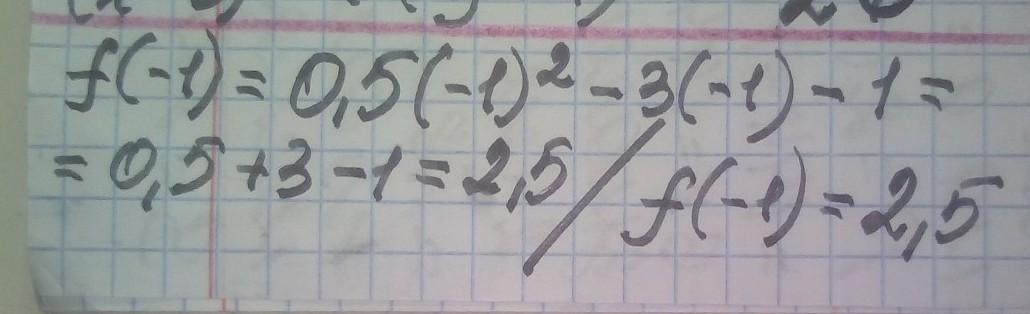 f(-1) = 0,5(-1)² - 3(-1) - 1 =
= 0,5 + 3 - 1 = 2,5 / f(-1) = 2,5